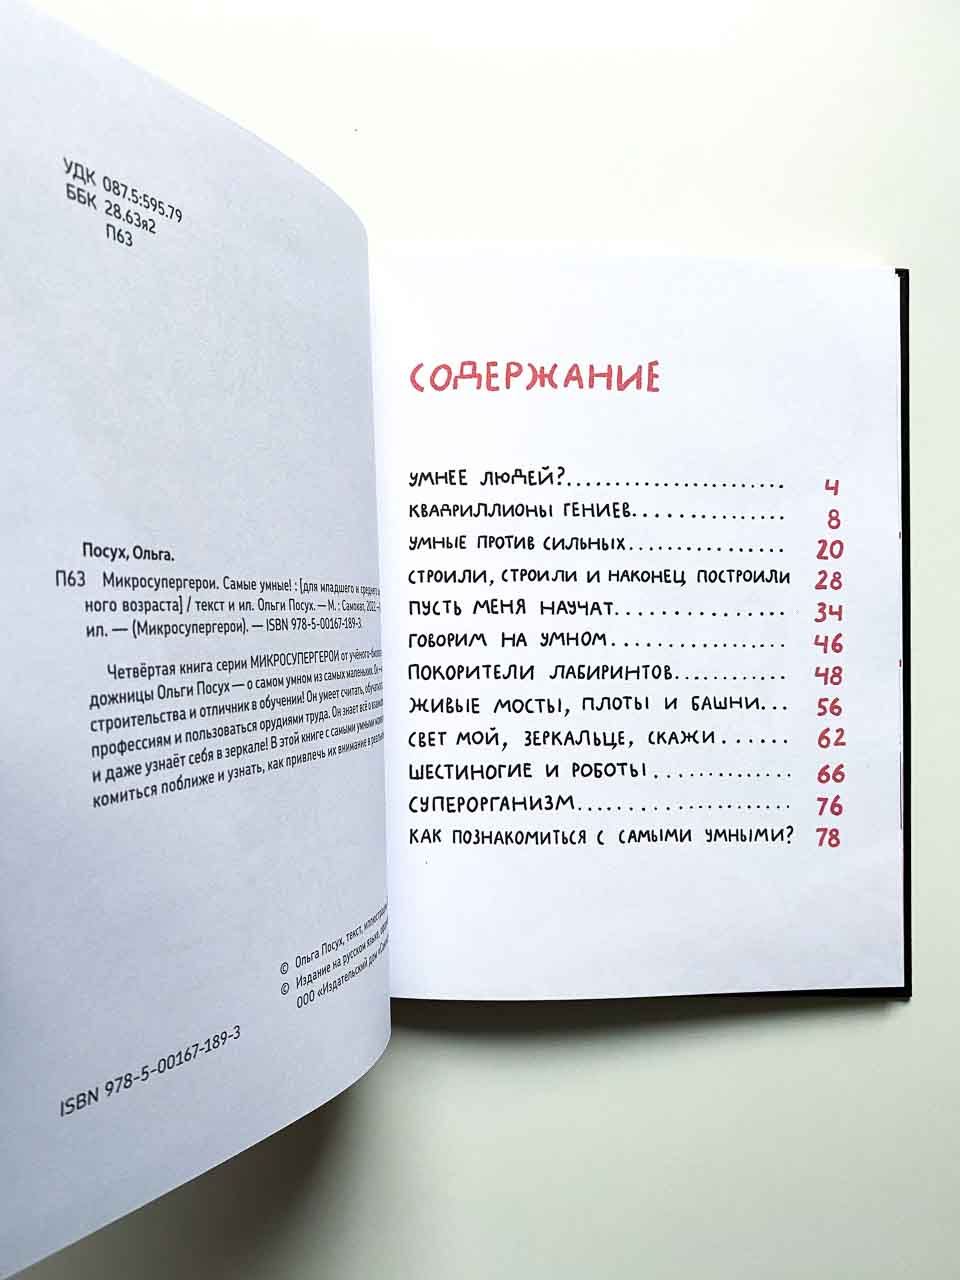 УДК 087.5:595.79
ББК 28.63я2
П63
Посух, Ольга.
П63 Микросупергерои. Самые умные! : [для младшего и среднего
ного возраста] / текст и ил. Ольги Посух. — М. : Самокат, 2022.
ил. — (Микросупергерои). — ISBN 978-5-00167-189-3.
Четвёртая книга серии МИКРОСУПЕРГЕРОИ от учёного-биолога
дожницы Ольги Посух — о самом умном из самых маленьких. Он —
строительства и отличник в обучении! Он умеет считать, обучаться
профессиям и пользоваться орудиями труда. Он знает всё о
и даже узнаёт себя в зеркале! В этой книге с самыми умными
комиться поближе и узнать, как привлечь их внимание в
© Ольга Посух, текст, иллюстрации
© Издание на русском языке,
ООО «Издательский дом
ISBN 978-5-00167-189-3
СОДЕРЖАНИЕ
УМНЕЕ ЛЮДЕЙ?...................... 4
КВАДРИЛЛИОНЫ ГЕНИЕВ............... 8
УМНЫЕ ПРОТИВ СИЛЬНЫХ................ 20
СТРОИЛИ, СТРОИЛИ И НАКОНЕЦ ПОСТРОИЛИ 28
ПУСТЬ МЕНЯ НАУЧАТ.................. 34
ГОВОРИМ НА УМНОМ.................. 46
ПОКОРИТЕЛИ ЛАБИРИНТОВ............ 48
ЖИВЫЕ МОСТЫ, ПЛОТЫ И БАШНИ... 56
СВЕТ МОЙ, ЗЕРКАЛЬЦЕ, СКАЖИ ....... 62
ШЕСТИНОГИЕ И РОБОТЫ .............. 66
СУПЕРОРГАНИЗМ...................... 76
КАК ПОЗНАКОМИТЬСЯ С САМЫМИ УМНЫМИ? 78